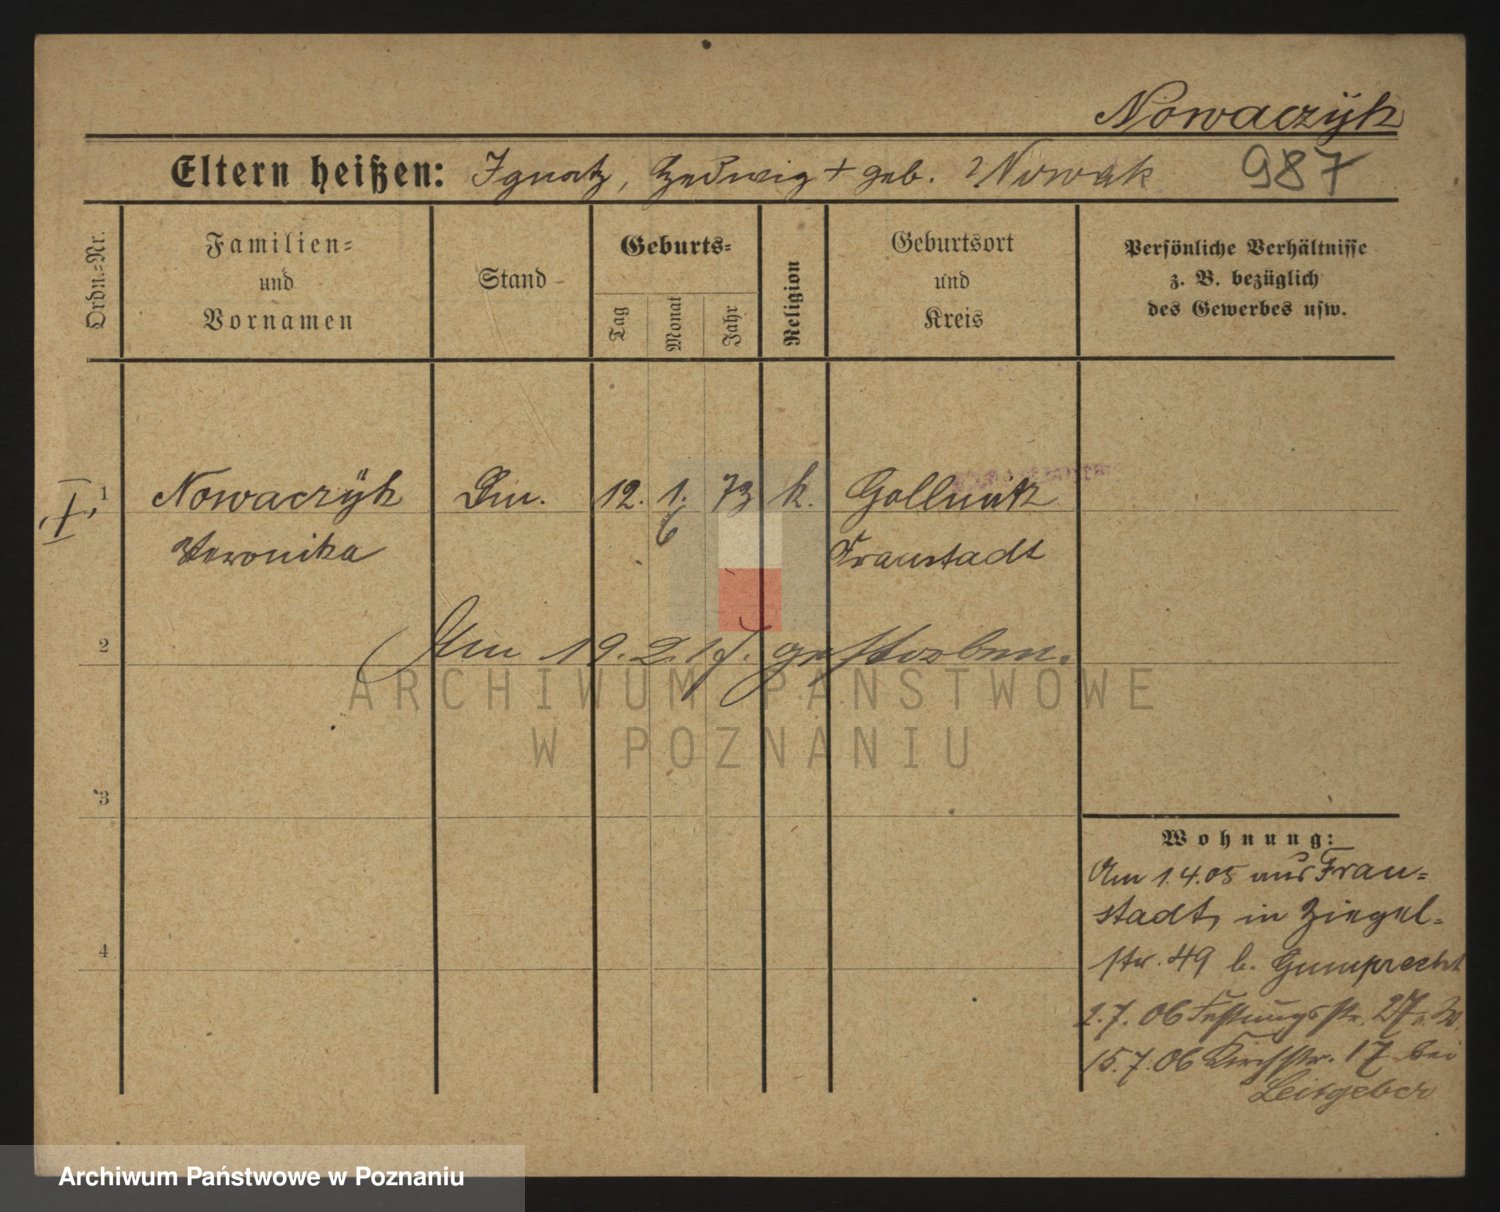 Nowaczÿk
Eltern heißen: Ignatz, Hedwig + geb. Nowak 987
Ordn.=Nr.
Familien=
und
Vornamen
Stand
Geburts=
Tag
Monat
Jahr
Religion
Geburtsort
und
Kreis
Persönliche Verhältnisse
z. B. bezüglich
des Gewerbes usw.
I, 1 Nowaczÿk Dm. 12. 1. 73 k. Gollmitz
6
Veronika Fraustadt
2
Am 19. 2. 17. gestorben.
3
4
Wohnung:
Am 1.4.05 aus Frau=
stadt, in Ziegel=
str. 49 b. Gumprecht
2.7.06 Festungsstr. 27
15.7.06 Kirchstr. 17 bei
Leitgeber
ARCHIWUM PAŃSTWOWE
W POZNANIU
Archiwum Państwowe w Poznaniu